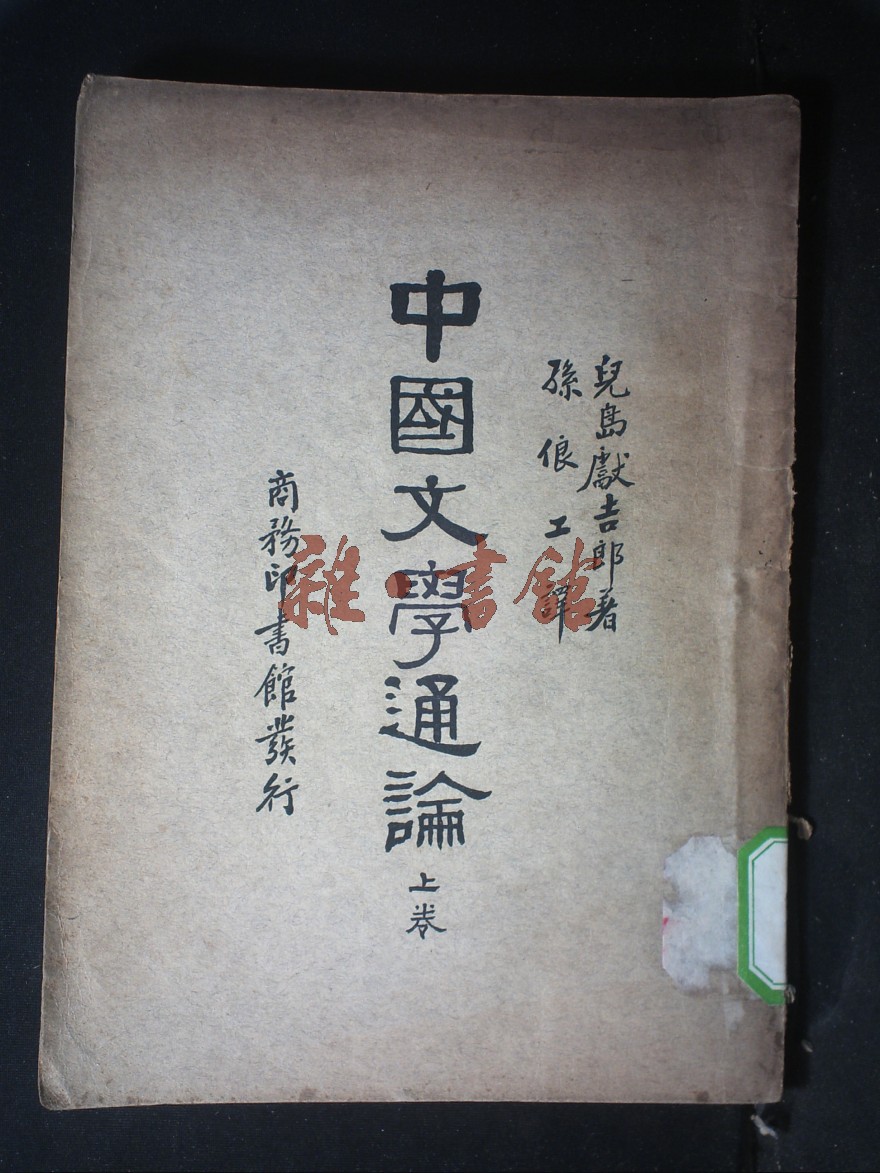 兒島獻吉郎著
孫俍工譯
中國文學通論
上卷
商務印書館發行
雜·書館